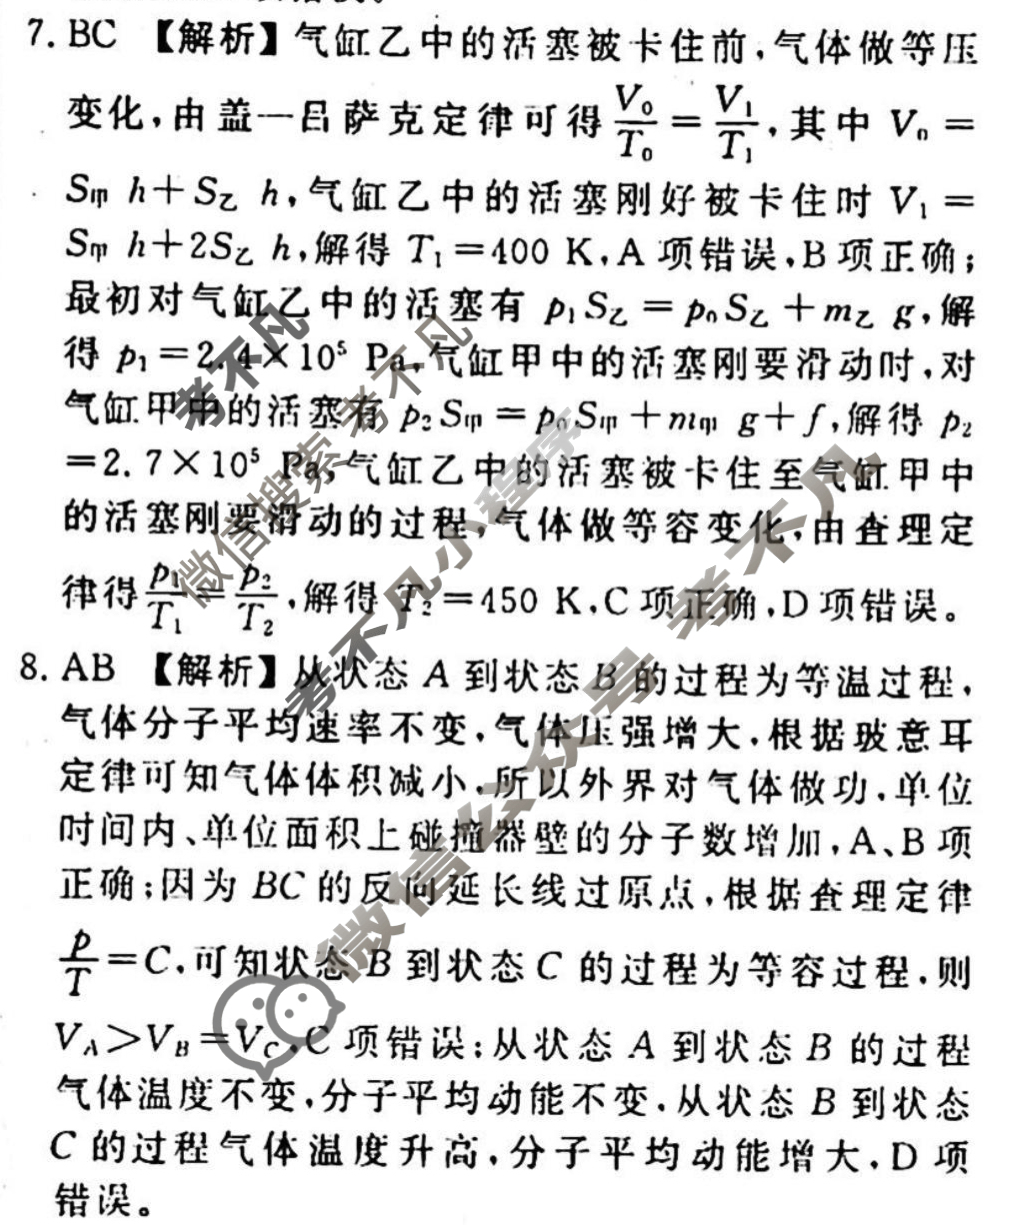 7. BC 【解析】气缸乙中的活塞被卡住前,气体做等压
变化,由盖一吕萨克定律可得 V₀/T₀ = V₁/T₁,其中 V₀ =
S甲 h+S乙 h,气缸乙中的活塞刚好被卡住时 V₁ =
S甲 h+2S乙 h,解得 T₁=400 K,A 项错误,B 项正确;
最初对气缸乙中的活塞有 p₁S乙 = p₀S乙 + m乙 g,解
得 p₁=2.4×10⁵ Pa,气缸甲中的活塞刚要滑动时,对
气缸甲中的活塞有 p₂S甲 = p₀S甲 + m甲 g+f,解得 p₂
=2.7×10⁵ Pa,气缸乙中的活塞被卡住至气缸甲中
的活塞刚要滑动的过程,气体做等容变化,由查理定
律得 p₁/T₁ = p₂/T₂,解得 T₂=450 K,C 项正确,D 项错误。
8. AB 【解析】从状态 A 到状态 B 的过程为等温过程,
气体分子平均速率不变,气体压强增大,根据玻意耳
定律可知气体体积减小,所以外界对气体做功,单位
时间内、单位面积上碰撞器壁的分子数增加,A、B 项
正确;因为 BC 的反向延长线过原点,根据查理定律
p/T=C,可知状态 B 到状态 C 的过程为等容过程,则
V_A>V_B=V_C,C 项错误;从状态 A 到状态 B 的过程
气体温度不变,分子平均动能不变,从状态 B 到状态
C 的过程气体温度升高,分子平均动能增大,D 项
错误。
考不凡
微信搜索 考不凡
考不凡小程序
微信公众号 考不凡